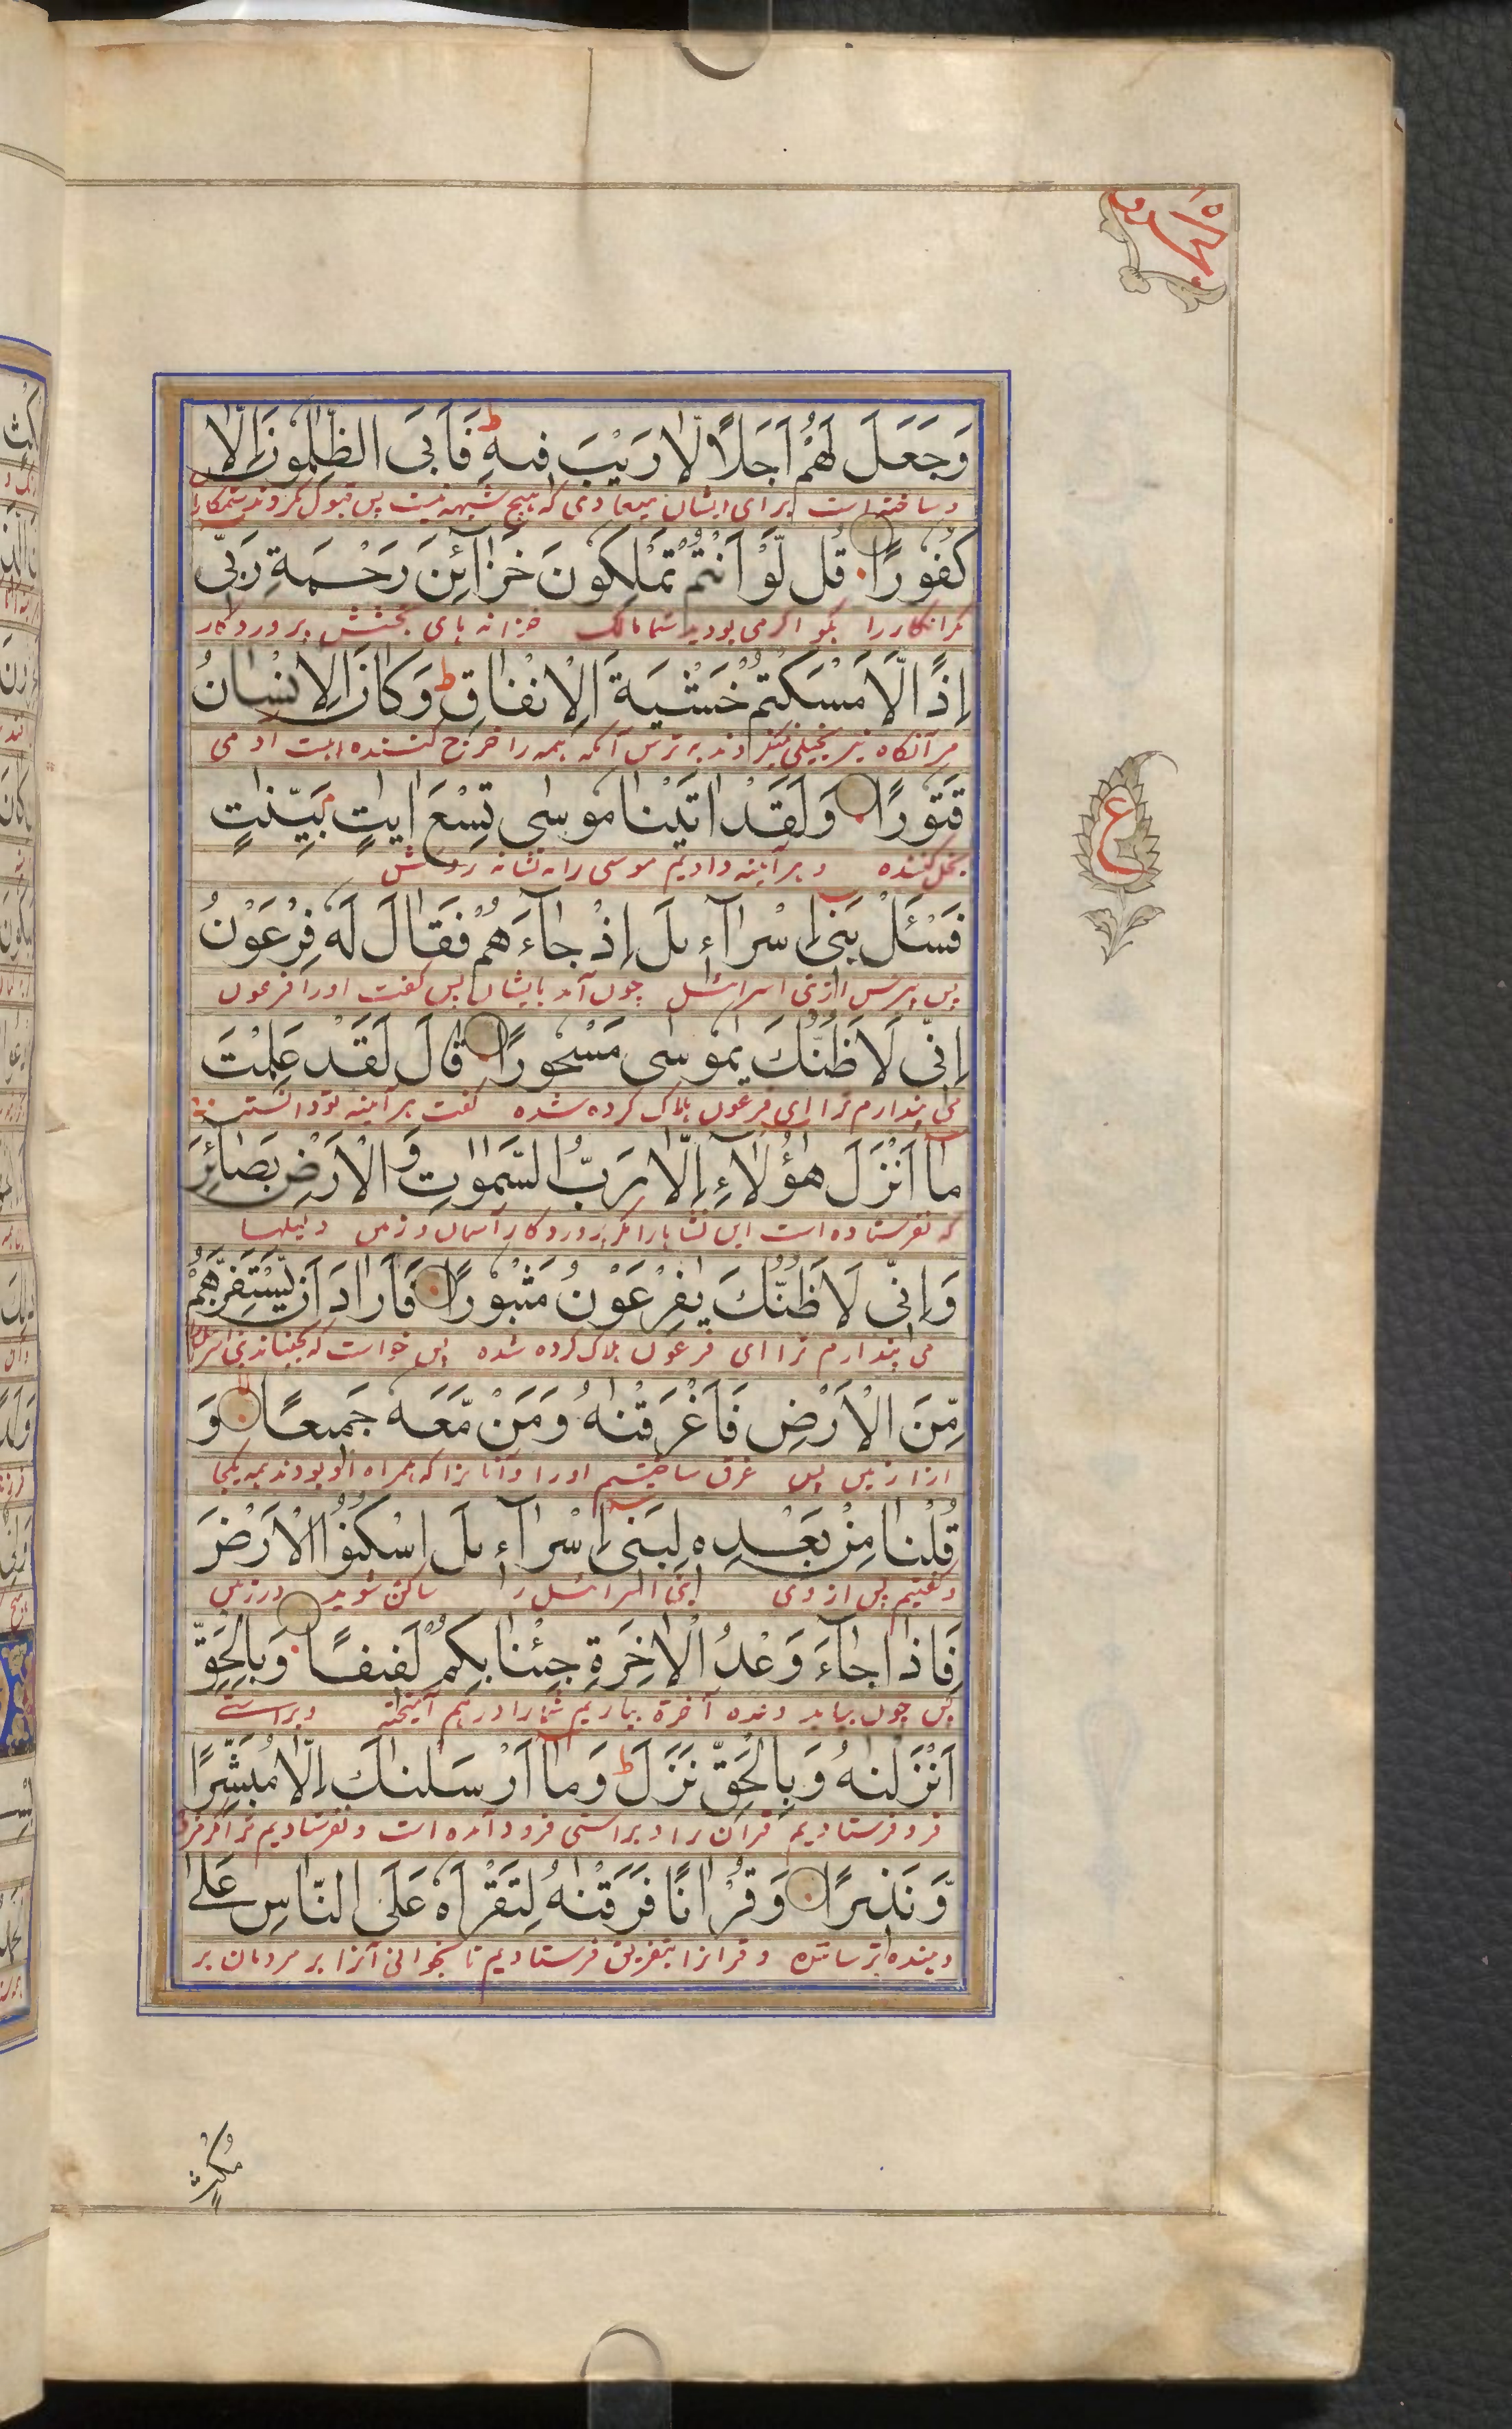 وَجَعَلَ لَهُمْ اَجَلًا لَّا رَيْبَ فِيهِ ط فَاَبَى الظّٰلِمُونَ اِلَّا
و ساخته است برای ایشان میعادی که هیچ شبهه نیست پس قبول نکردند ستمکاران
كُفُورًا قُل لَّوْ اَنْتُمْ تَمْلِكُونَ خَزَآئِنَ رَحْمَةِ رَبِّى
مگر انکار را بگو اگر می بودید شما مالک خزانه های بخشش پروردگار
اِذًا لَّاَمْسَكْتُمْ خَشْيَةَ الْاِنْفَاقِ ط وَكَانَ الْاِنْسَانُ
آنگاه نیز بخیلی به ترس آنکه همه را خرج کننده است آدمی
قَتُورًا وَلَقَدْ اٰتَيْنَا مُوسٰى تِسْعَ اٰيٰتٍ بَيِّنٰتٍ
بخل کننده و هر آینه دادیم موسی را نه نشانه روشن
فَسْئَلْ بَنِى اِسْرَآءِيلَ اِذْ جَآءَهُمْ فَقَالَ لَهٗ فِرْعَوْنُ
پس بپرس از بنی اسرائیل چون آمد بایشان پس گفت او را فرعون
اِنِّى لَاَظُنُّكَ يٰمُوسٰى مَسْحُورًا قَالَ لَقَدْ عَلِمْتَ
می پندارم ترا ای فرعون هلاک کرده شده گفت هر آینه تو دانسته
مَآ اَنْزَلَ هٰٓؤُلَآءِ اِلَّا رَبُّ السَّمٰوٰتِ وَالْاَرْضِ بَصَآئِرَ
که نفرستاده است این نشانها را مگر پروردگار آسمان و زمین دلیلها
وَاِنِّى لَاَظُنُّكَ يٰفِرْعَوْنُ مَثْبُورًا فَاَرَادَ اَنْ يَّسْتَفِزَّهُمْ
می پندارم ترا ای فرعون هلاک کرده شده پس خواست که بجنباند بنی اسرائیل
مِّنَ الْاَرْضِ فَاَغْرَقْنٰهُ وَمَنْ مَّعَهٗ جَمِيعًا وَ
از زمین پس غرق ساختیم او را و آنانرا که همراه او بودند همه یکجا
قُلْنَا مِنْ بَعْدِهٖ لِبَنِى اِسْرَآءِيلَ اسْكُنُوا الْاَرْضَ
و گفتیم پس از وی بنی اسرائیل را ساکن شوید در زمین
فَاِذَا جَآءَ وَعْدُ الْاٰخِرَةِ جِئْنَا بِكُمْ لَفِيفًا وَبِالْحَقِّ
پس چون بیاید وعده آخرة بیاریم شما را در هم آمیخته و براستی
اَنْزَلْنٰهُ وَبِالْحَقِّ نَزَلَ ط وَمَآ اَرْسَلْنٰكَ اِلَّا مُبَشِّرًا
فرو فرستادیم قرآن را و براستی فرود آمده است و نفرستادیم ترا مگر
وَّنَذِيرًا وَقُرْاٰنًا فَرَقْنٰهُ لِتَقْرَاَهٗ عَلَى النَّاسِ عَلٰى
و قرآنرا بتفریق فرستادیم تا بخوانی آنرا بر مردمان بر
ع
مُكْثٍ